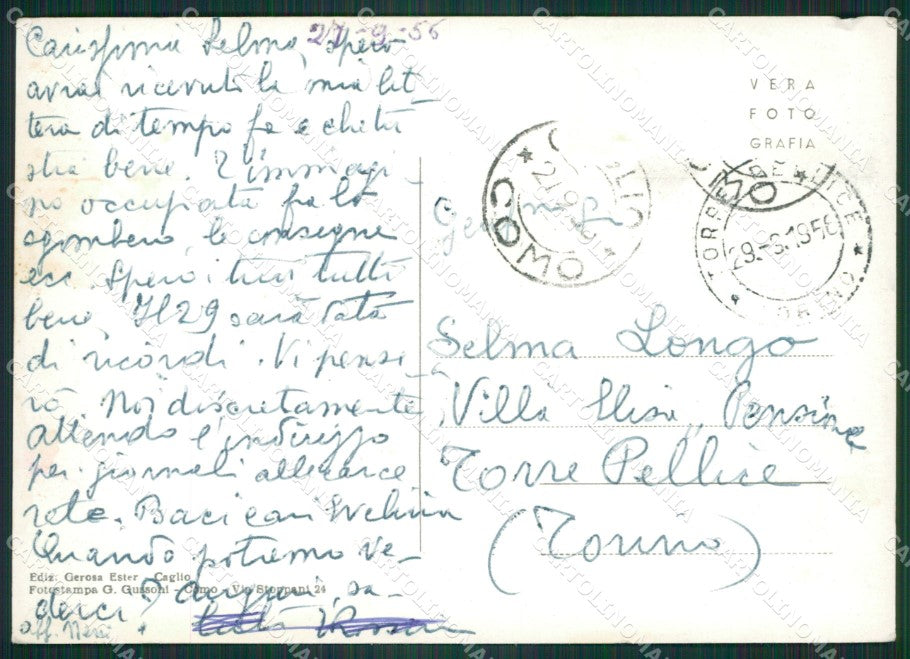 Carissima Selma, spero
27-9-56
avrai ricevuto la mia let-
tera di tempo fa e che tu
stia bene. T'immagi-
no occupata fra lo
sgombero, le consegne
ecc. Spero i tuoi tutti
bene. Il 29 sarà data
di ricordi. Vi pense-
rò. Noi discretamente
attendo l'indirizzo
per giornali
Baci cari
Quando potremo ve-
derci? Auguri, sa-
aff. Nerii
Ediz. Gerosa Ester - Caglio
Fotostampa G. Gussoni - Como - Via Stoppani 24
VERA
FOTO
GRAFIA
CAGLIO
27.9.56
COMO
TORRE PELLICE
29.-9.1956
TORINO
COMO
Gent.ma Sig.
Selma Longo
Villa Elisa, Pensione
Torre Pellice
(Torino)
CARTOLINOMANIA